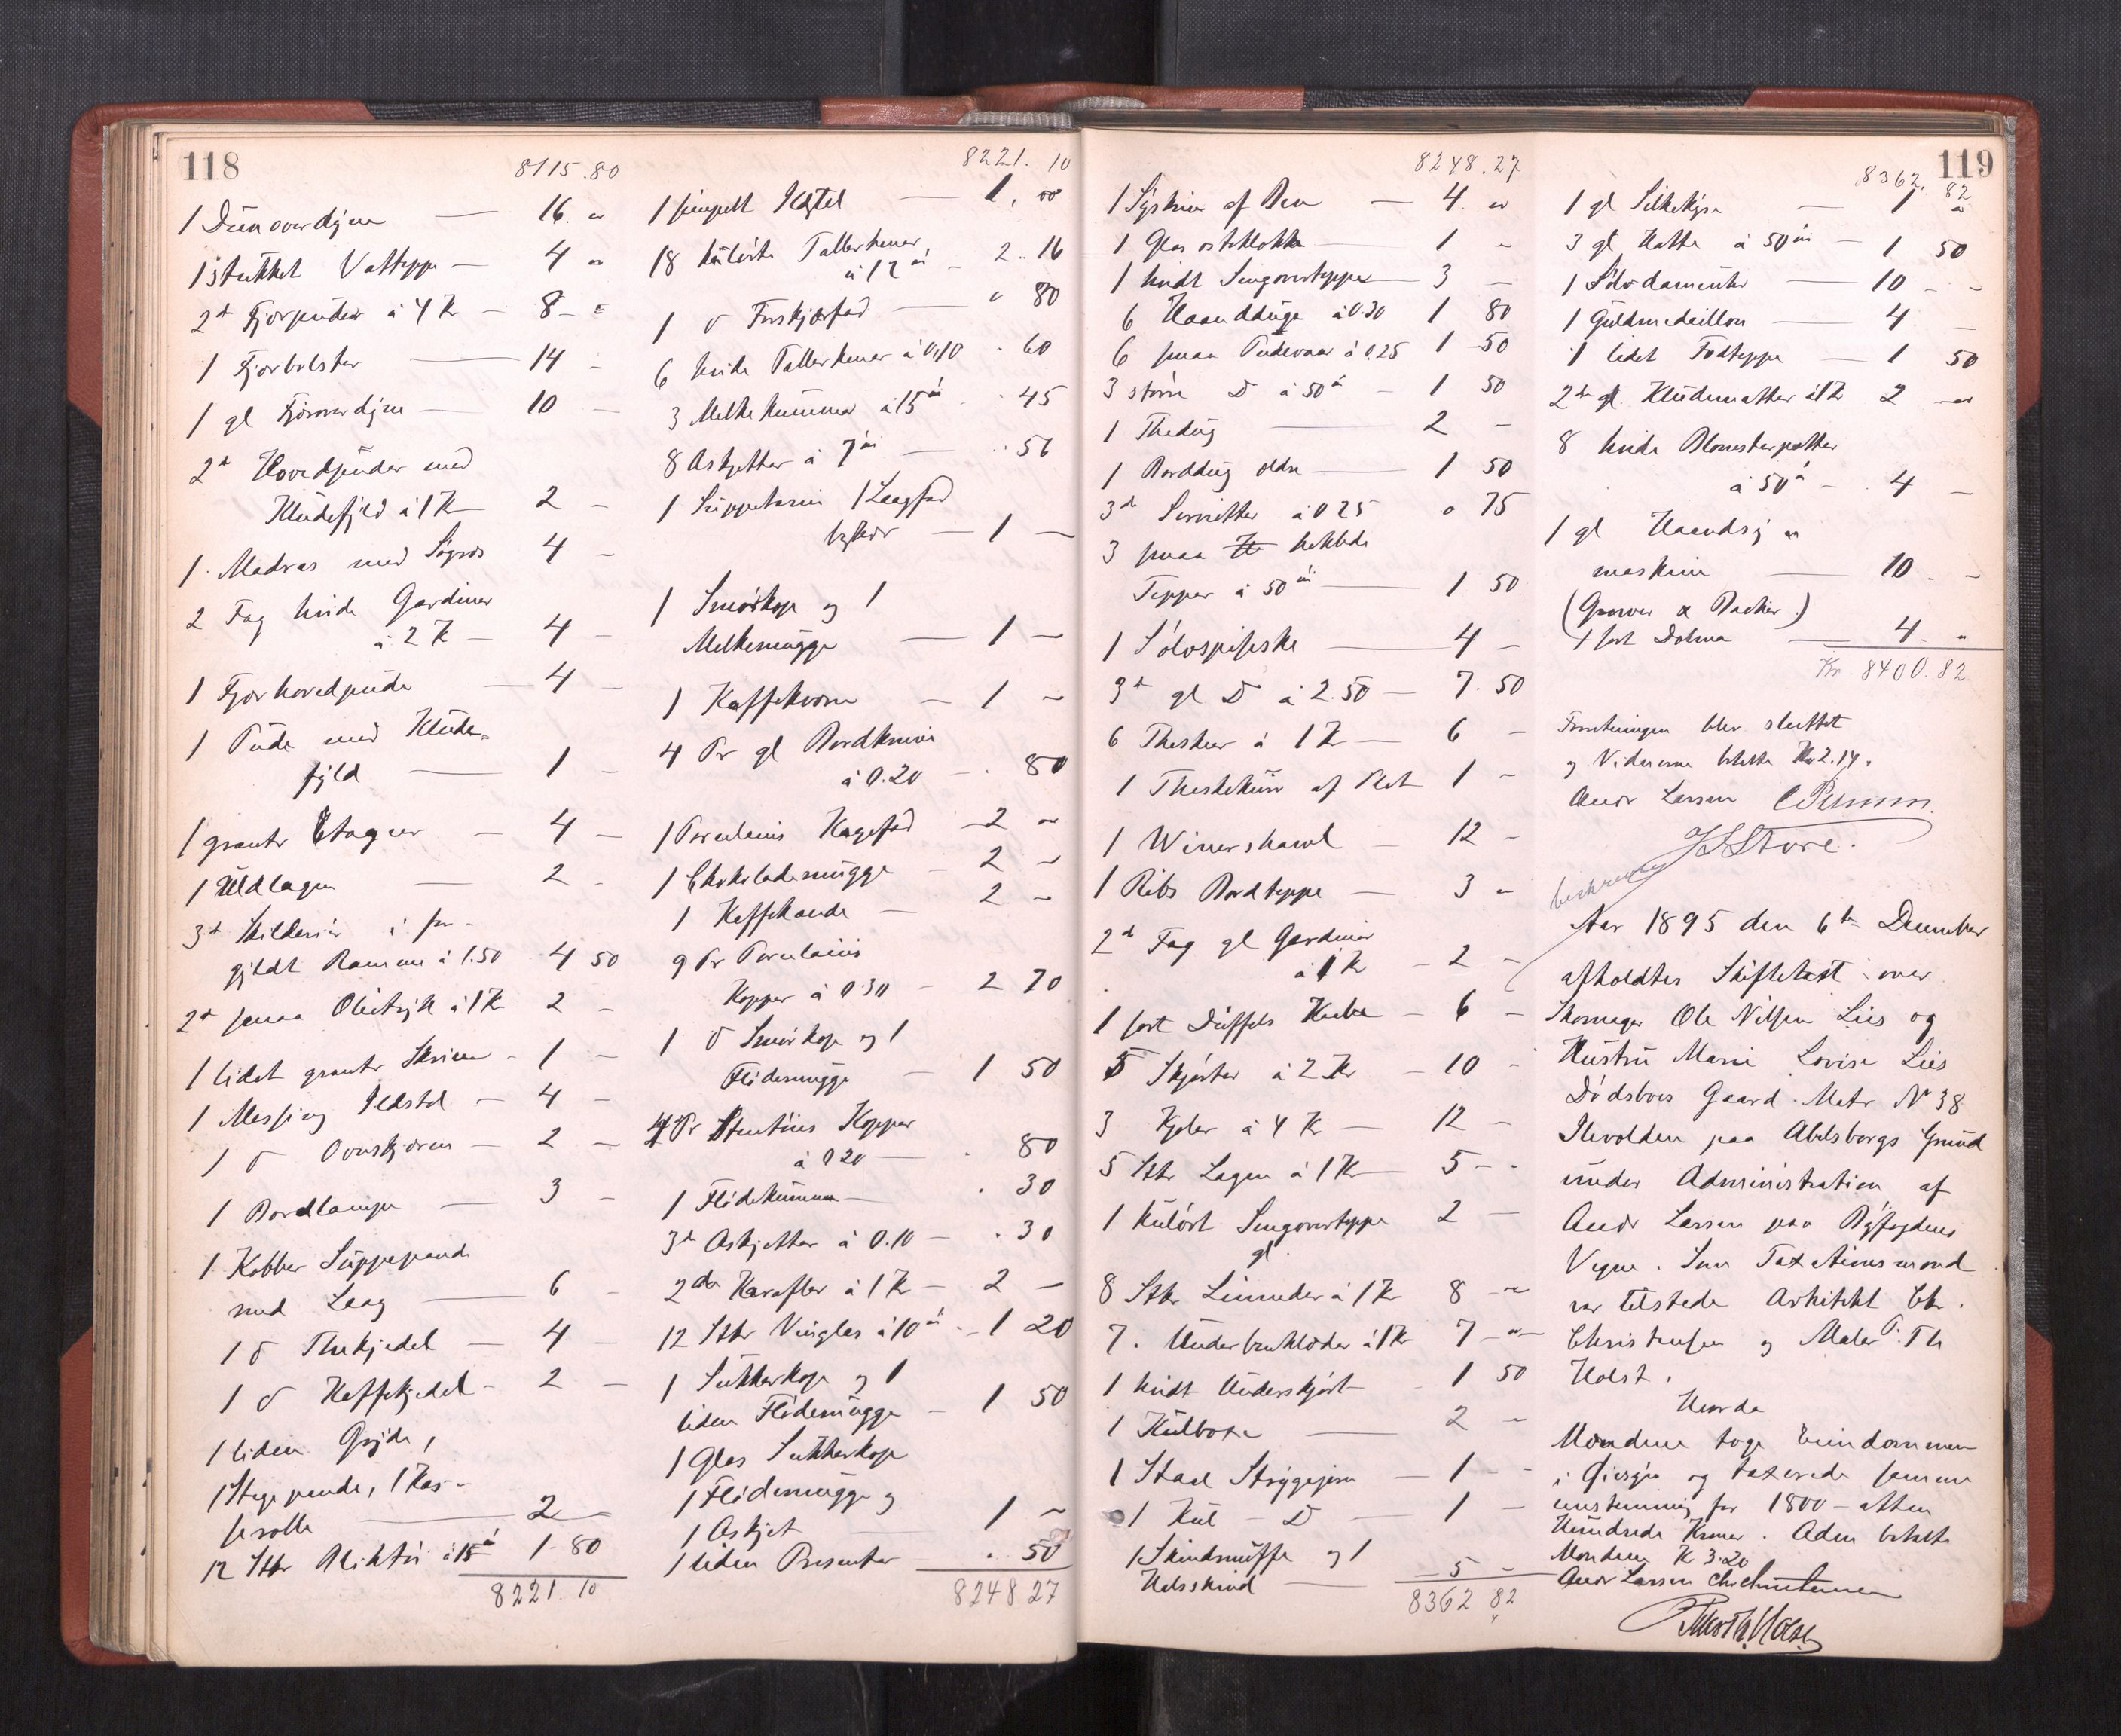 118
8115.80
1 Dünoverdyne — 16. "
1 stükket Vatteppe — 4 "
2d Fjørpuder á 4 Kr — 8 - "
1 Fjørbolster — 14 -
1 gl Fjøroverdyne — 10 -
2d Hovedpuder med
Kludefyld á 1 Kr — 2 -
1 Madras med Søgræs 4 -
2 Fag hvide Gardiner
á 2 Kr — 4 -
1 Fjørhovedpude — 4 -
1 Pude med Klude-
fyld — 1 -
1 grønt — 4 -
1 Uldlagen — 2 -
3d Skilderier i for-
gyldt Ramme á 1.50 4 50
2d smaa Olietryk á 1 Kr 2 -
1 lidet grønt Skrin - 1 -
1 Messing Ildstel — 4 -
1 D Ovnskjærm — 2 -
1 Bordlampe — 3 -
1 Kobber Süppepande
med Laag — 6 -
1 D Thekjedel — 4 -
1 D Kaffekjedel - 2 -
1 liden Gryde,
1 Stegepande, 1 Kas-
serolle — 2 -
12 Stkr á 15 1 80
8221.10
8221.10
1 simpelt — 1, "
18 kulørte Tallerkener,
á 12 - 2.16
1 D Forskjærfad — " 80
6 hvide Tallerkener á 0,10 . 60
3 Melkekummer á 15 . 45
8 Askjetter á 7 — . 56
1 Süppeterrin 1 Laagfad
— 1 —
1 Smørkop og 1
Melkemügge — 1 —
1 Kaffekvern — 1 —
4 Pr gl Bordknive
á 0.20 — . 80
1 Porcelains Kagefad — 2 "
1 Chokolademügge — 2 "
1 Kaffekande — 2 "
9 Pr Porcelains
Kopper á 0.30 — 2 70
1 D Smørkop og 1
Flødemügge — 1 50
4 Pr Stentøis Kopper
á 0 20 — . 80
1 Flødekumme — . 30
3d Askjetter á 0.10 — . 30
2de Karafler á 1 Kr — 2 —
12 Stkr Vinglas á 10 - 1 20
1 Sukkerkop og 1
liden Flødemügge — 1 50
1 Glas Sukkerkop
1 Flødemügge og
1 Askjet 1 ~
1 liden Presenter — . 50
8248 27
119
8248.27
1 Syskrin af Ben — 4. "
1 Glas osteklokke — 1 -
1 hvidt Sengeovertæppe — 3 -
6 Haandduge á 0.30 1 80
6 smaa Pudevaar á 0.25 1 50
3 større D á 50 — 1 50
1 Thedug — 2 -
1 Borddug ældre — 1 50
3de Servietter á 0 25 " 75
3 smaa heklede
Tepper á 50 — 1 50
1 Sølvspiseske — 4 -
3d gl D á 2.50 — 7.50
6 Theskeer á 1 Kr — 6 -
1 af Plet 1 -
1 Winershawl — 12 -
1 Ribs Bordteppe — 3 "
2d Fag gl Gardiner
á 1 Kr — 2 -
1 sort Düffels Kaabe — 6 -
5 Skjørter á 2 Kr — 10 -
3 Kjoler á 4 Kr — 12 -
5 Stkr Lagen á 1 Kr — 5 - -
1 Kulørt Sengeovertæppe 2 —
gl
8 Stkr Linneder á 1 Kr 8 —
7. Underbenklæder á 1 Kr 7 —
1 hvidt Underskjørt — 1 50
1 Kulboxe — 2 -
1 Staal Strygejern — 1 -
1 Kul - D — 1 -
1 Skindmuffe og 1
Halsskind — 5 -
8362 82
8362.82
1 gl Silkekjole — 1 "
3 gl Hatte á 50 — 1 50
1 Sølvdameuhr — 10 - -
1 Guldmedaillon — 4 -
1 lidet Fodteppe — 1 50
2de gl Kludematter á 1 Kr 2 —
8 hvide Blomsterpotter
á 50 — 4 -
1 gl Haandsy=
maskine — 10. -
(Grover & Backer.)
1 sort Dolman — 4. "
Kr. 8400.82
Forretningen blev sluttet
og Vidnerne betalte Kr 2.14.
Andr Larsen
J L Støre.
beskreven
Aar 1895 den 6te December
afholdtes Skiftetaxt over
Skomager Ole Nilsen Lies og
Hustru Marie Lovise Lies
Dødsboes Gaard Matr No 38
Ilevolden paa Abelsborgs Grund
under Administration af
Andr Larsen paa Byfogdens
Vegne. Som Taxationsmænd
var tilstede Arkitekt Chr.
Christensen og Maler P. Th
Holst.
Hvorda
Mændene toge Eiendommen
i Øiesyn og taxerede samme
enstemmig for 1800 - atten
Hundrede Kroner. Aden betalte
Mændene K 3.20
Andr Larsen Chr Christensen
P. Th. Holst